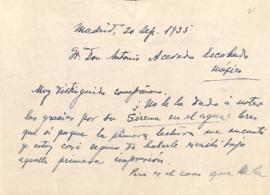 Madrid, 20 Sep. 1935
Sr. Don Antonio Acevedo Escobedo
México
Muy distinguido compañero:
¿No le he dado a usted
las gracias por su Sirena en el agua? Creo
que sí porque la primera lectura me encantó
y estoy casi seguro de haberle escrito bajo
aquella primera impresión.
Pero es el caso que